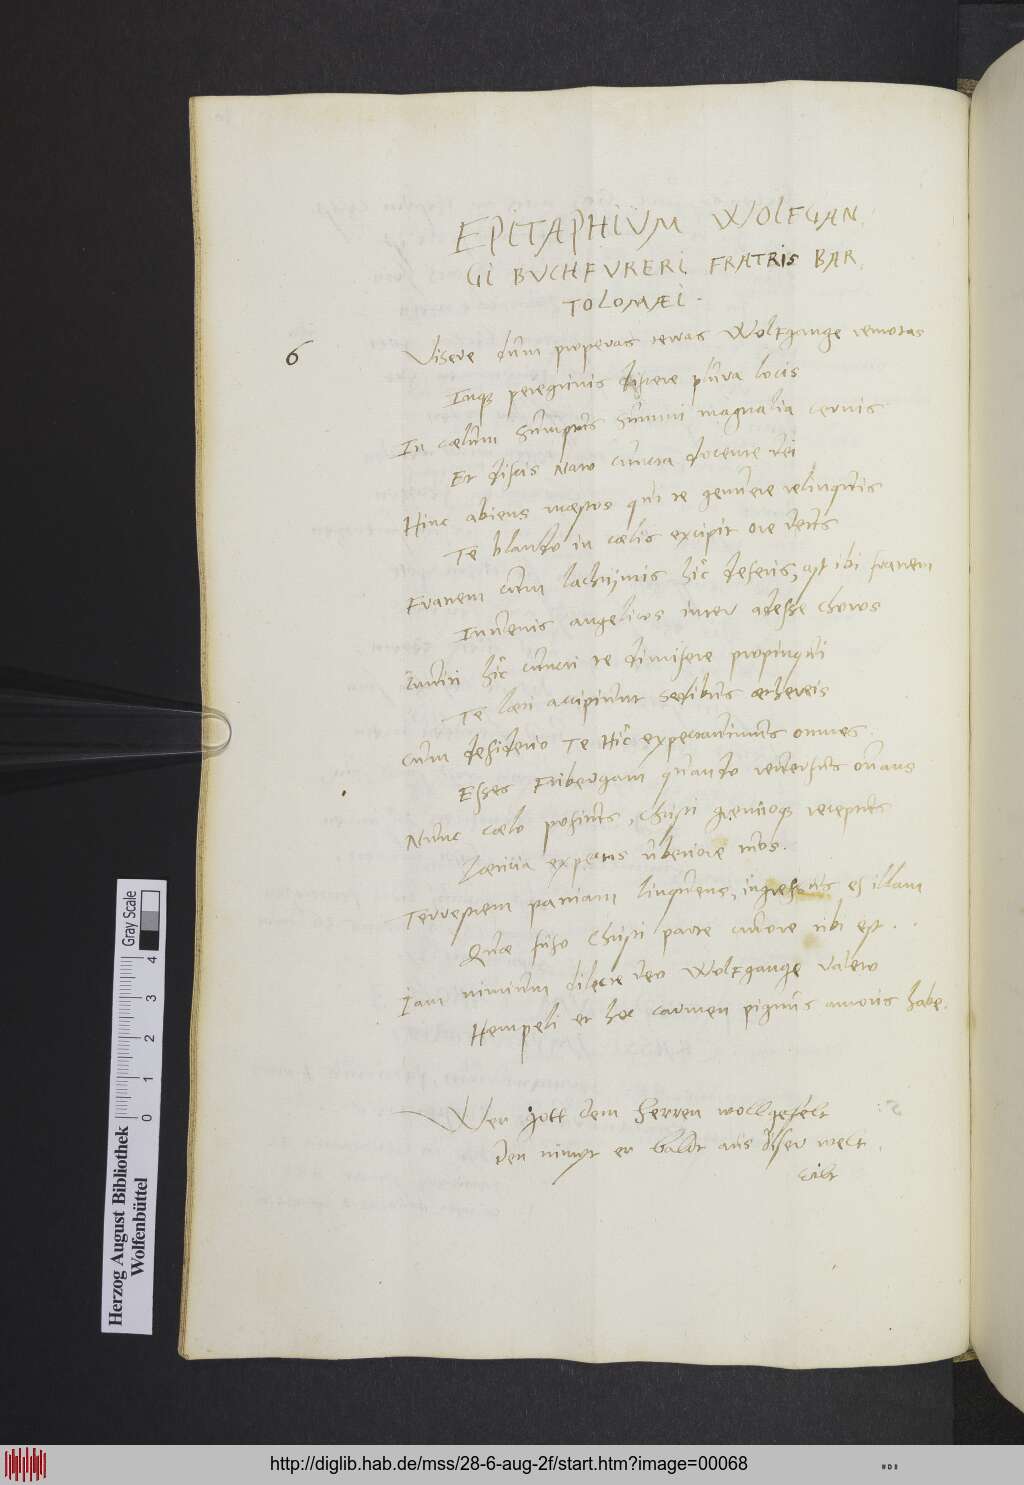 EPITAPHIVM WOLFGAN
GI BVCHFVRERI FRATRIS BAR
TOLOMÆI.
6
Visere dum properas terras Wolfgange remotas
Inq; peregrinis discere plura locis
In cælum sumptus summi magnalia cernis
Et discis Nato cuncta docente dei
Hinc abiens mæstos qui te genuere relinquis
Te blando in cælis excipit ore deus
Fratrem cum lachrymis hîc deseris, ast ibi fratrem
Inuenis angelicos inter adesse choros
Inuiti hîc cuncti te dimisere propinqui
Te læti accipiunt sedibus æthereis
Cum desiderio Te Hîc expectauimus omnes.
Esses Fribergam quando reuersus ouans
Nunc cælo positus, Christi gremioq; receptus
Lætitia expectas vberiore tuos.
Terrestrem patriam linquens, ingressus es illam
Quæ fuso Christi parta cruore tibi est.
Iam nimium dilecte deo Wolfgange valeto
Hempeli et hoc carmen pignus amoris habe.
Wer gott dem herren wollgefelt
Den nimpt er baldt aus diser welt.
Herzog August Bibliothek
Wolfenbüttel
0 1 2 3 4
Gray Scale
http://diglib.hab.de/mss/28-6-aug-2f/start.htm?image=00068